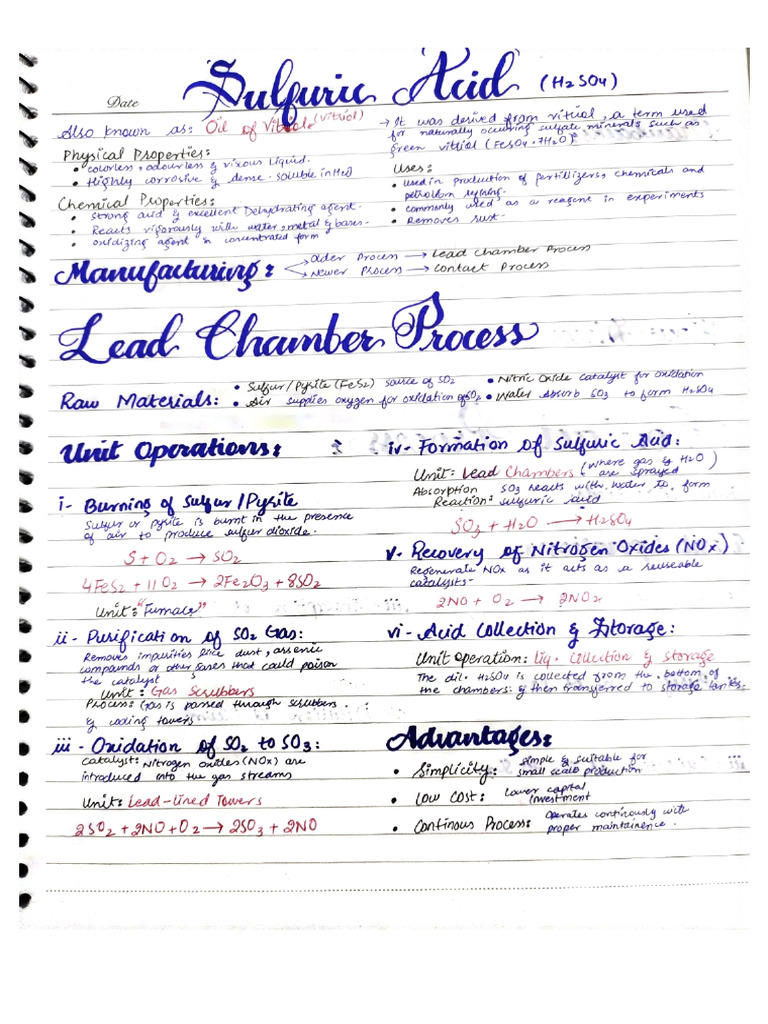 Sulfuric Acid (H2SO4)
Date
Also known as: Oil of Vitriol (Vitriol)
→ It was derived from vitriol, a term used
for naturally occuring sulfate minerals such as
green vitriol (FeSO4.7H2O)
Physical Properties:
• colorless, odourless & viscous liquid.
• Highly corrosive & dense. Soluble in H2O
Chemical Properties:
• Strong acid & excellent Dehydrating agent.
• Reacts vigorously with water, metal & bases.
• oxidizing agent in concentrated form
Uses:
• used in production of fertilizers, chemicals and
petroleum refining.
• commonly used as a reagent in experiments
• Removes rust.
Manufacturing:
Older Process → Lead Chamber Process
Newer Process → Contact Process
Lead Chamber Process
Raw Materials:
• Sulfur/Pyrite (FeS2) source of SO2
• Air supplies oxygen for oxidation of SO2
• Nitric Oxide catalyst for oxidation
• Water absorb SO3 to form H2SO4
Unit Operations:
i- Burning of Sulfur/Pyrite
Sulfur or pyrite is burnt in the presence
of air to produce sulfur dioxide.
S + O2 → SO2
4FeS2 + 11O2 → 2Fe2O3 + 8SO2
Unit: "Furnace"
ii- Purification of SO2 Gas:
Removes impurities like dust, arsenic
compounds or other gases that could poison
the catalyst
Unit: Gas Scrubbers
Process: Gas is passed through scrubbers
& cooling towers
iii- Oxidation of SO2 to SO3:
Catalyst: Nitrogen oxides (NOx) are
introduced into the gas streams
Unit: Lead-lined Towers
2SO2 + 2NO + O2 → 2SO3 + 2NO
iv- Formation of Sulfuric Acid:
Unit: Lead Chambers (where gas & H2O)
are sprayed
Absorption Reaction: SO3 reacts with water to form
sulfuric acid
SO3 + H2O → H2SO4
v- Recovery of Nitrogen Oxides (NOx)
Regenerate NOx as it acts as a reuseable
catalysts-
2NO + O2 → 2NO2
vi- Acid Collection & Storage:
Unit Operation: Liq. Collection & Storage
The dil. H2SO4 is collected from the bottom of
the chambers & then transferred to storage tanks.
Advantages:
• Simplicity: simple & suitable for
small scale production
• Low Cost: Lower capital
investment
• Continous Process: Operates continously with
proper maintainence.